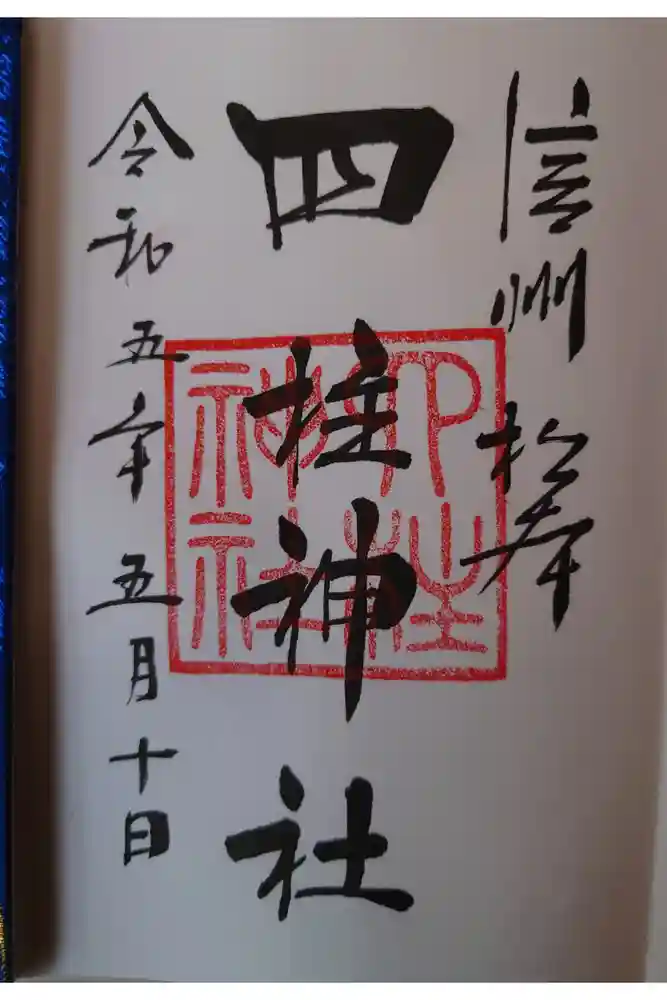 信州 松本
四柱神社
四柱
神社
令和五年五月十日